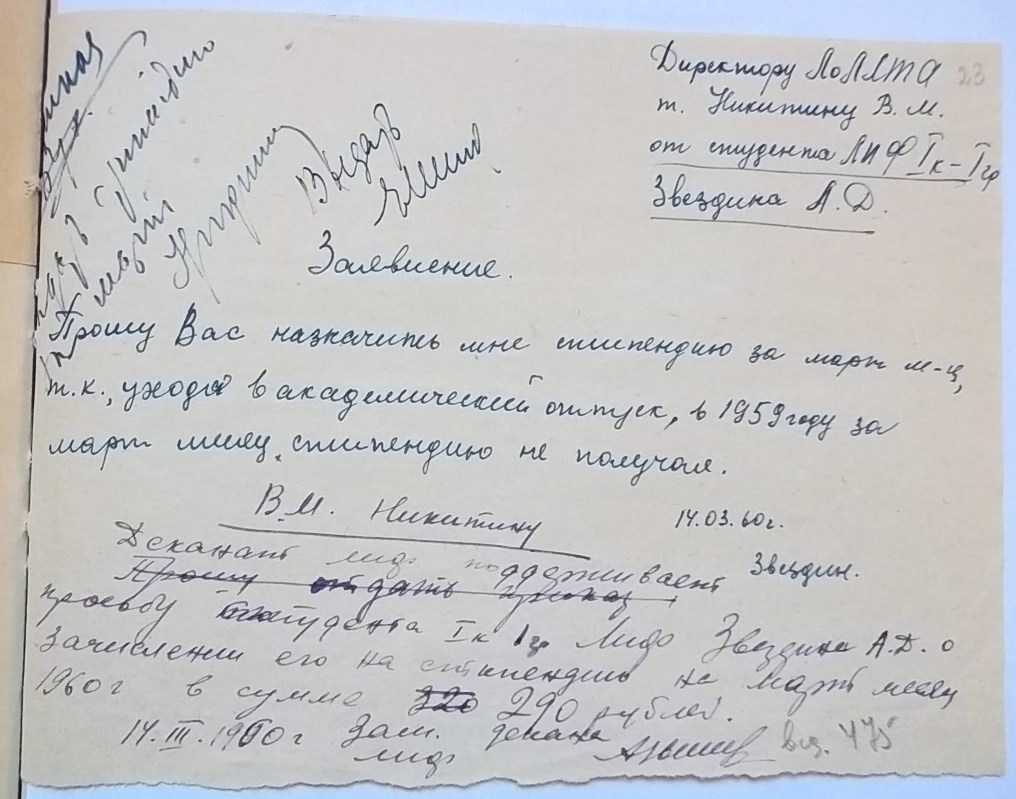 Директору ЛОЛЛТА 23
т. Никитину В.М.
от студента ЛИФ Iк-Iгр
Звездина А.Д.
Выдать
Заявление.
Прошу Вас назначить мне стипендию за март м-ц,
т.к., уходя в академический отпуск, в 1959 году за
март месяц стипендию не получал.
14.03.60г.
Звездин.
В.М. Никитину
Деканат поддерживает
Прошу отдать приказ
просьбу студента Iк Iгр Звездина А.Д. о
зачислении его на стипендию на март месяц
1960 г в сумме 320 290 рублей.
14.III.1960 г Зам. декана
475